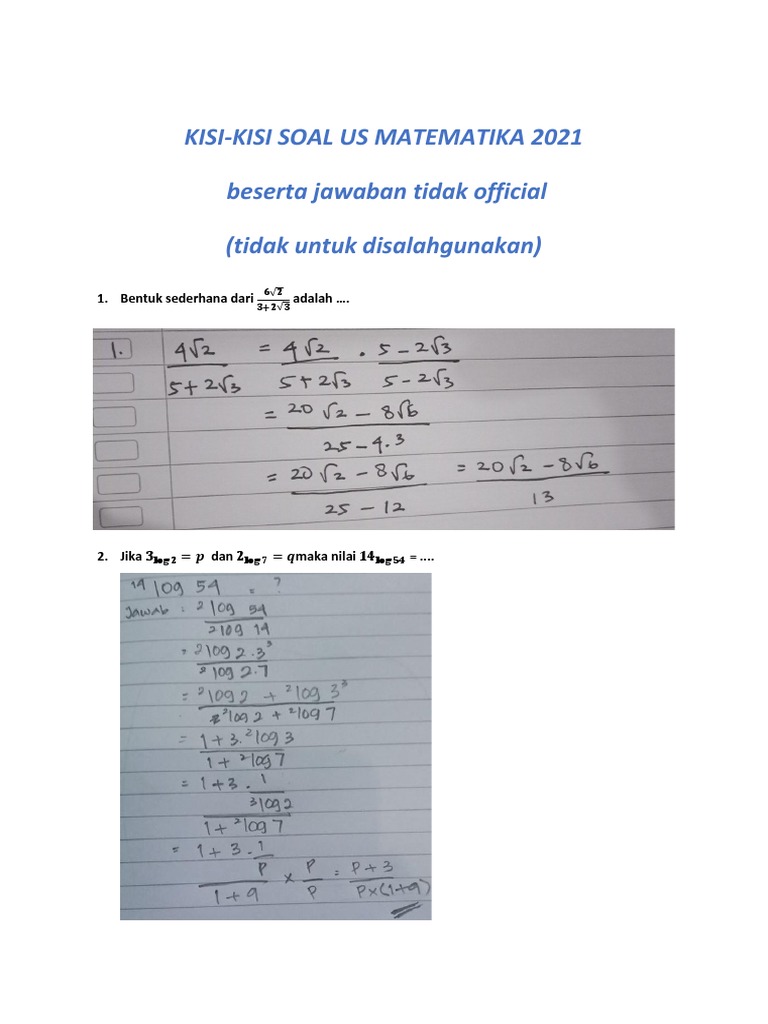 KISI-KISI SOAL US MATEMATIKA 2021
beserta jawaban tidak official
(tidak untuk disalahgunakan)
1. Bentuk sederhana dari 6√2/3+2√3 adalah ....
1. 4√2/5+2√3 = 4√2/5+2√3 . 5-2√3/5-2√3
= 20√2 - 8√6/25-4.3
= 20√2 - 8√6/25-12 = 20√2 - 8√6/13
2. Jika 3log2 = p dan 2log7 = qmaka nilai 14log54 = ....
¹⁴log 54 = ?
Jawab : ²log 54/²log 14
= ²log 2.3³/²log 2.7
= ²log 2 + ²log 3³/²log 2 + ²log 7
= 1+3.²log 3/1+ ²log 7
= 1+3.1/³log2/1+ ²log 7
= 1+3.1/p/1+q x p/p = p+3/p×(1+q)